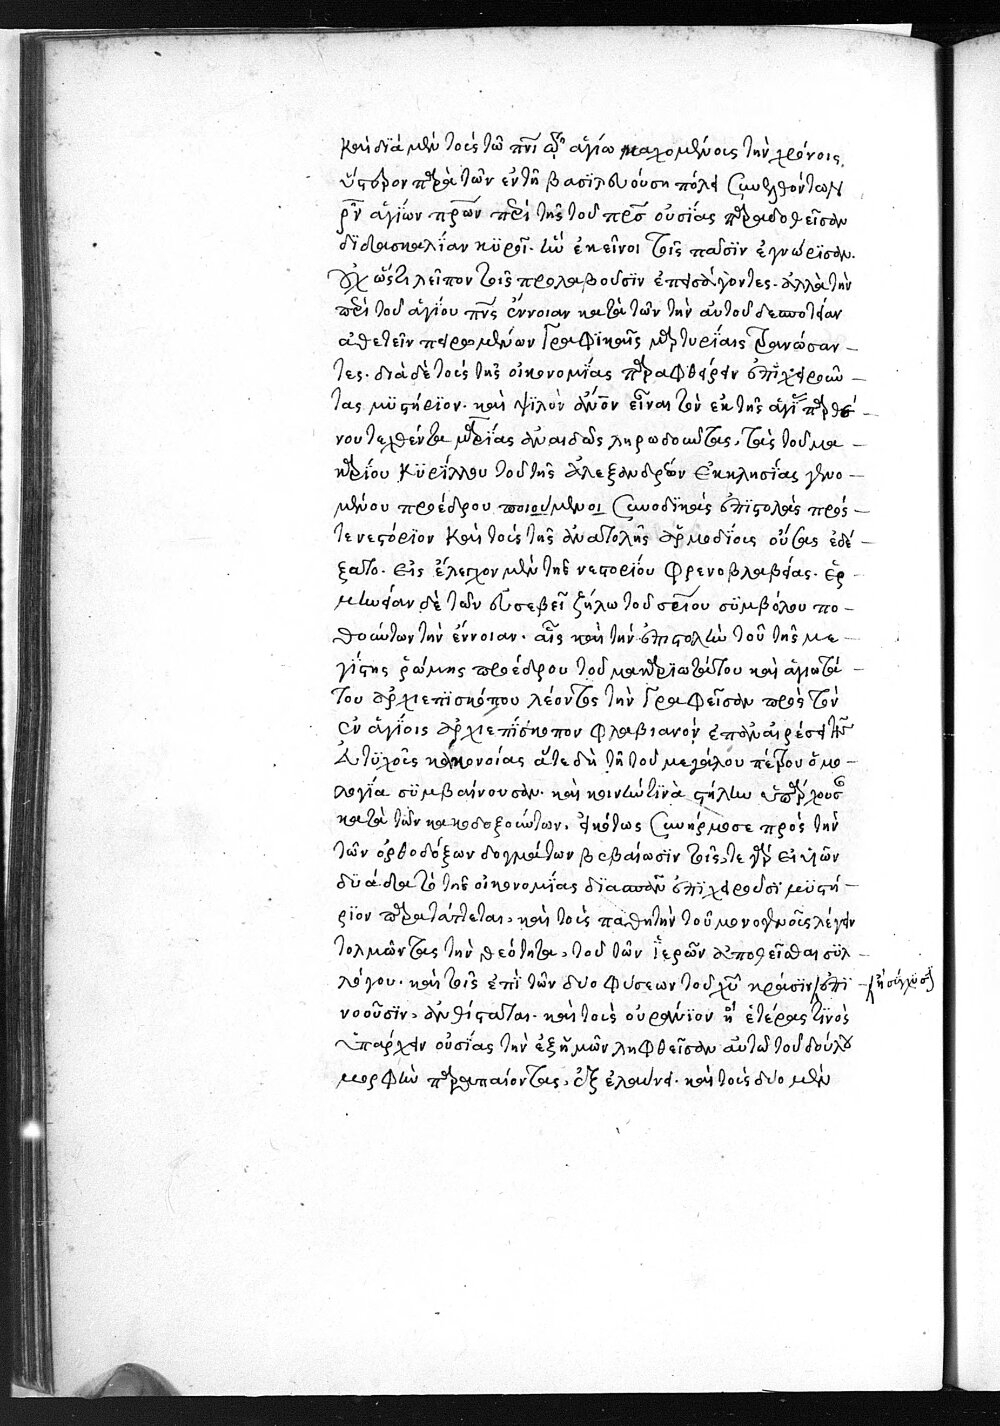 καὶ διὰ μὲν τοὺς τῶ πνι τῶ ἁγίω μαχομένοις τὴν χρόνοις
ὕστερον παρὰ τῶν ἐν τῆ βασιλευούση πόλει συνελθόντων
ρν ἁγίων πρων περὶ τῆς τοῦ πνς οὐσίας παραδοθεῖσαν
διδασκαλίαν κυροῖ· ἣν ἐκεῖνοι τοῖς πᾶσιν ἐγνώρισαν.
οὐχ ὥς τι λεῖπον τοῖς προλαβοῦσιν ἐπεισάγοντες. ἀλλὰ τὴν
περὶ τοῦ ἁγίου πνς ἔννοιαν κατὰ τῶν τὴν αὐτοῦ δεσποτείαν
ἀθετεῖν πειρωμένων γραφικαῖς μαρτυρίαις τρανώσαν-
τες· διὰ δὲ τοὺς τῆς οἰκονομίας παραφθείρειν ἐπιχειροῦν-
τας μυστήριον· καὶ ψιλὸν ἄνον εἶναι τὸν ἐκ τῆς ἁγί παρθέ-
νου τεχθέντα μαρίας ἀναιδῶς ληρωδοῦντας, τὰς τοῦ μα-
καρίου κυρίλλου τοῦ τῆς ἀλεξανδρέων ἐκκλησίας γενο-
μένου προέδρου ποιουμένοι συνοδικὰς ἐπιστολὰς πρός-
τε νεστόριον καὶ τοὺς τῆς ἀνατολῆς ἁρμοδίοις οὔσας ἐδέ-
ξατο· εἰς ἔλεγχον μὲν τῆς νεστορίου φρενοβλαβείας· ἑρ-
μηνείαν δὲ τῶν εὐσεβεῖ ζήλω τοῦ σείου συμβόλου πο-
θούντων τὴν ἔννοιαν· αἷς καὶ τὴν ἐπιστολὴν τοῦ τῆς με-
γίστης ῥώμης προέδρου τοῦ μακαριωτάτου καὶ ἁγιωτά-
του ἀρχιεπισκόπου λέοντος τὴν γραφεῖσαν πρὸς τὸν
ἐν ἁγίοις ἀρχιεπίσκοπον φλαβιανὸν ἐπ ἀναιρέσει τῆς
εὐτυχοῦς κακονοίας ἅτε δὴ τῆ τοῦ μεγάλου πέτρου ὁμο-
λογία συμβαίνουσαν· καὶ κοινήν τινὰ στήλην ὑπάρχουσ
κατὰ τῶν κακοδοξούντων, εἰκότως συνήρμοσε πρὸς τὴν
τῶν ὀρθοδόξων δογμάτων βεβαίωσιν τοῖς, τε γὰρ εἰς υἱῶν
δυάδα τὸ τῆς οἰκονομίας διασπᾶν ἐπιχειροῦσι μυστή-
ριον παρατάττεται, καὶ τοὺς παθητὴν τοῦ μονογενοῦς λέγειν
τολμῶντας τὴν θεότητα, τοῦ τῶν ἱερῶν ἀπωθεῖσθαι συλ-
λόγου· καὶ τοῖς ἐπὶ τῶν δύο φύσεων τοῦ χυ κρᾶσιν ἐπι-
ἢ σύγχυσιν
νοοῦσιν, ἀνθίσταται· καὶ τοὺς οὐράνιον ἢ ἑτέρας τινὸς
ὑπάρχειν οὐσίας τὴν ἐξ ἡμῶν ληφθεῖσαν αὐτῶ τοῦ δούλου
μορφὴν παραπαίοντας, ἐξελαύνει· καὶ τοὺς δύο μὲν